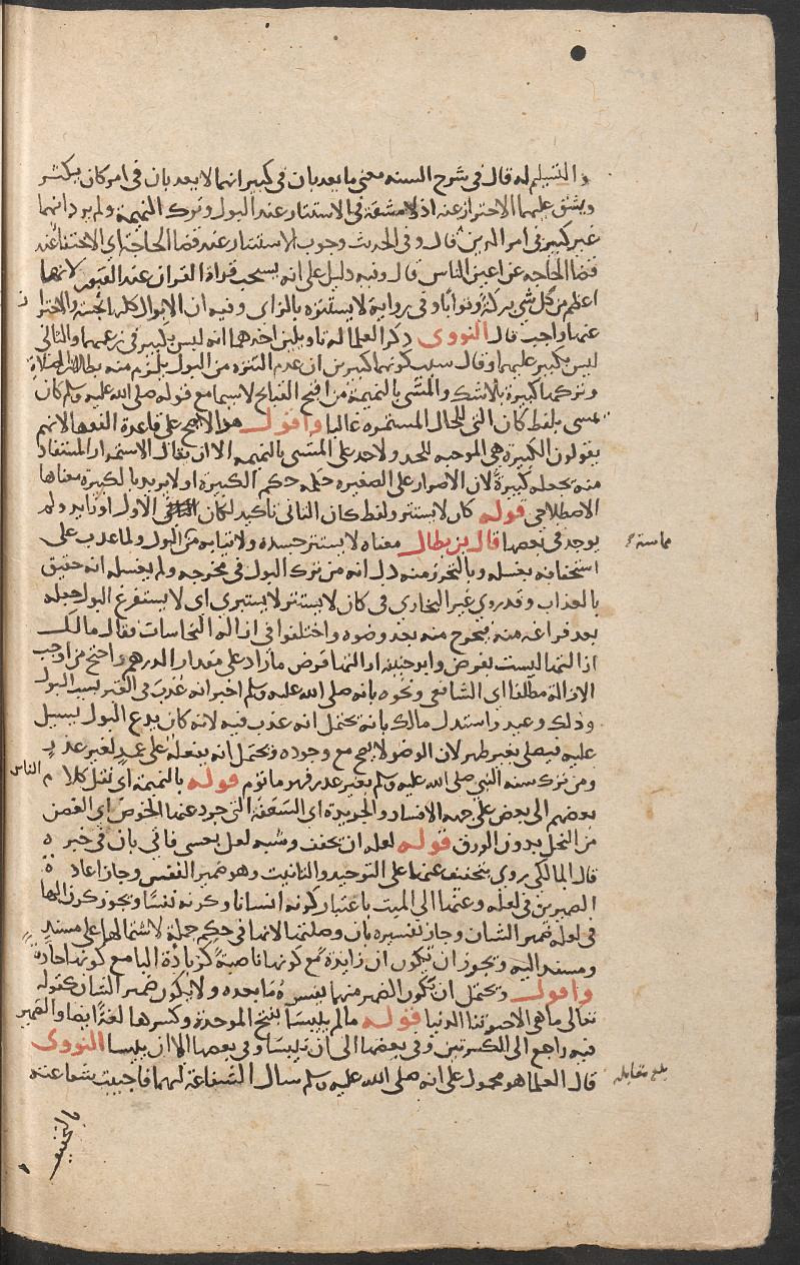 والتسليم له قال في شرح السنه معنى ما يعذبان في كبير انهما لا يعذبان في امر كان يكبر
ويشق عليهما الاحتراز عنه اذ لا مشقة في الاستتار عند البول وترك النميمة ولم يرد انهما
غير كبير في امر الدين قال وفي الحديث وجوب الاستتار عند قضا الحاجة اي الاختفا عند
قضا الحاجه عن اعين الناس قال وفيه دليل على انه يستحب قراة القران عند القبور لانها
اعظم من كل شي بركة وثوابا وفي رواية لا يستنزه بالزاى وفيه ان الابوال كلها نجسة والاحتراز
عنها واجب قال النووى ذكر العلما له تاويلين احدهما انه ليس بكبير في زعمهما والثاني
ليس بكبير عليهما وقال سبب كونهما كبيرين ان عدم التنزه من البول يلزم منه بطلان الصلاة
وتركها كبيرة بلا شك والمشي بالنميمة من اقبح القبائح لا سيما مع قوله صلى الله عليه وسلم كان
يمشى بلفظ كان التى للحال المستمره غالبا واقول هذا لا يصح على قاعدة الفقها لانهم
يقولون الكبيرة هي الموجبه للحد ولا حد على المشى بالنميمه الا ان يقال الاستمرار المستفاد
منه يجعله كبيرة لان الاصرار على الصغيره حكمه حكم الكبيرة او لا يريد بالكبيره معناها
الاصطلاحي قوله كان لا يستتر ولفظ كان الثاني تاكيد لكان الاول او زايد ولم
يوجد في بعضها قال بن بطال معناه لا يستتر جسده ولا ثيابه من البول ولما عذب على
مماسته
استخفافه بغسله وبالتحرز منه دل انه من ترك البول في مخرجه ولم يغسله انه حقيق
بالعذاب وقد روي غير البخاري في كان لا يستتر لا يستبري اى لا يستفرغ البول جهله
بعد فراغه منه فيخرج منه بعد وضوه واختلفوا في ازالة النجاسات فقال مالك
ازالتها ليست بفرض وابو حنيفه ازالتها فرض ما زاد على مقدار الدرهم واحتج من اوجب
الازالة مطلقا اى الشافعي ونحوه بانه صلى الله عليه وسلم اخبر انه عذب في القبر بسبب البول
وذلك وعيد واستدل مالك بانه يحتمل انه عذب فيه لانه كان يدع البول يسيل
عليه فيصلى بغير طهر لان الوضو لا يصح مع وجوده ويحتمل انه يفعله على عمد لغير عذر
ومن ترك سنه النبي صلى الله عليه وسلم بغير عذر فهو ماثوم قوله بالنميمة اى نقل كلام الناس
بعضهم الى بعض على جهه الافساد والجريدة اى السعفة التى جرد عنها الخوص اي الغصن
من النخل بدون الورق قوله لعله ان يخفف وشبه لعل بعسى فاتي بان في خبره
قال المالكي روى يخفف عنها على التوحيد والتانيث وهو ضمير النفس وجاز اعادة
الضميرين في لعله وعنها الى الميت باعتبار كونه انسانا وكونه نفسا ويجوز كون الها
في لعله ضمير الشان وجاز تفسيره بان وصلتها لانها في حكم جملة لاشتمالها على مسند
ومسند اليه ويجوز ان تكون ان زايدة مع كونها ناصبة كزيادة البا مع كونها جارة
واقول ويحتمل ان يكون الضمير مبهما يفسره ما بعده ولا يكون ضمير الشان كقوله
تعالى ما هي الا حيوتنا الدنيا قوله ما لم ييبسا بفتح الموحدة وكسرها لغة ايضا والضمير
فيه راجع الى الكسرتين وفي بعضها الى ان تيبسا وفي بعضها الا ان ييبسا النووى
قال العلما هو محمول على انه صلى الله عليه وسلم سال الشفاعة لهما فاجيبت شفاعته
بلغ مقابله
بالتخفيف